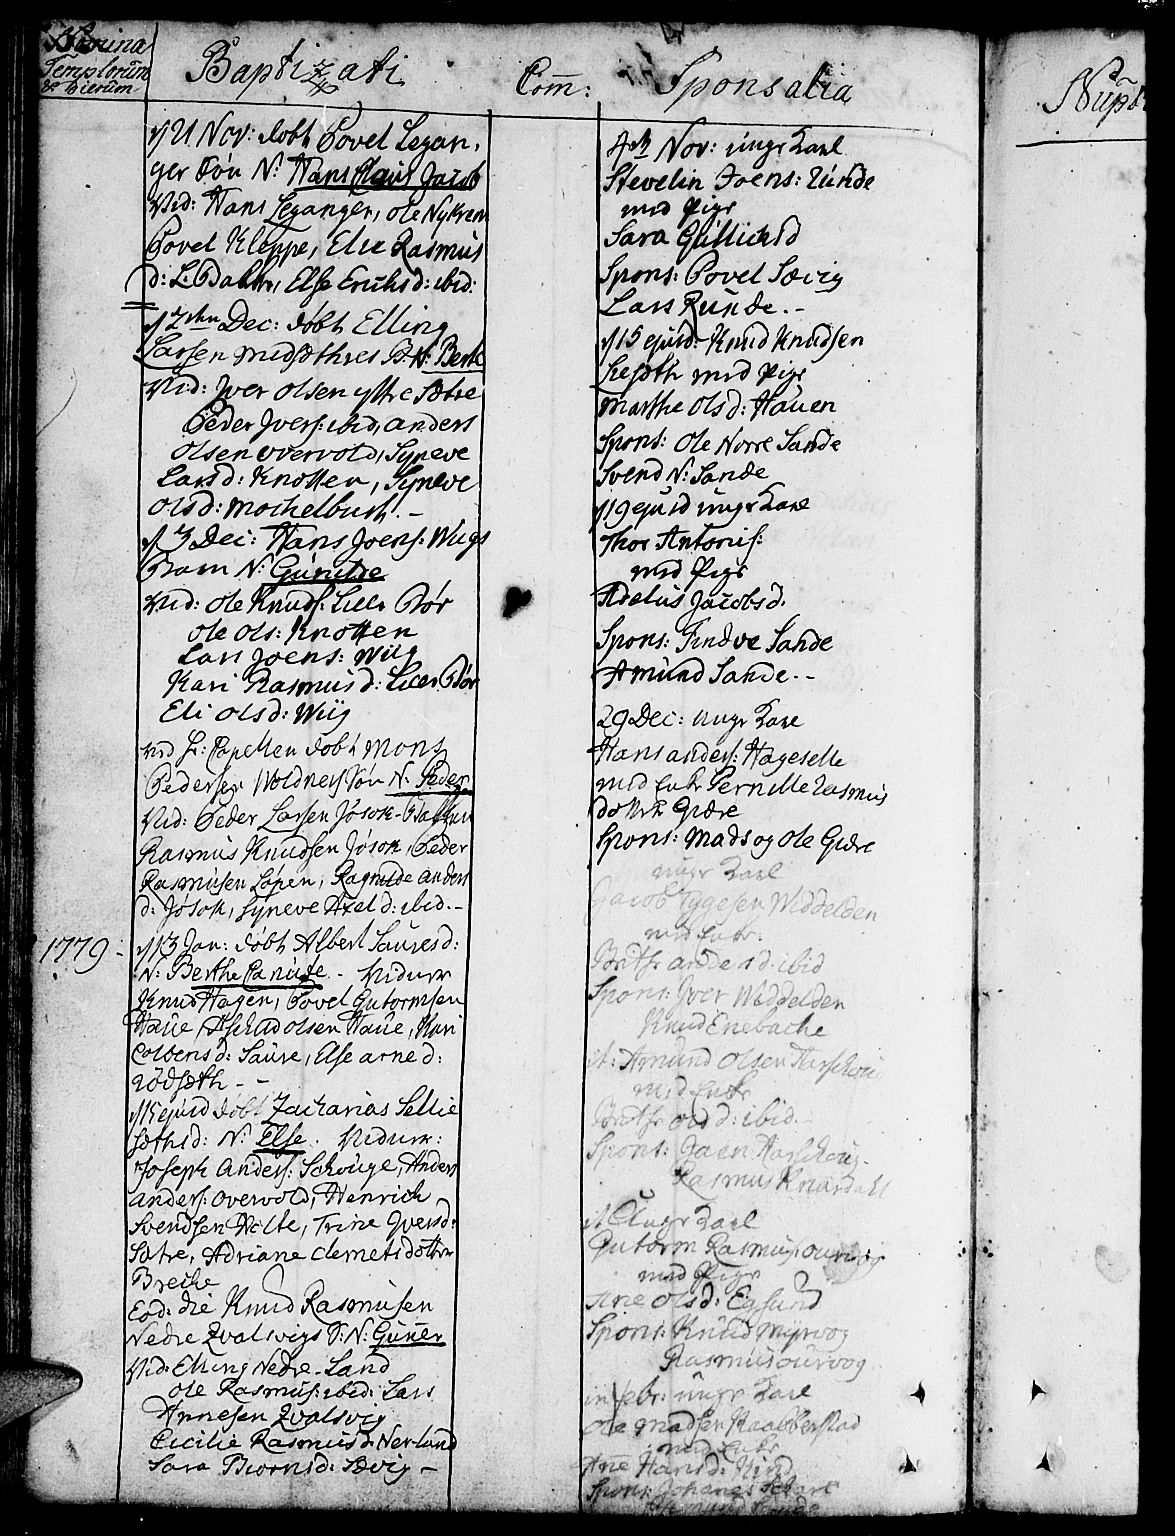 Nomina
Templorum
& Dierum
Baptizati
Com:
Sponsalia
Nupt
d 21 Nov: døbt Povel Legan,
ger Søn N: Hans Claus Jacob
Vid: Hans Leganger, Ole Nykrem
Povel Kloppe, Elie Rasmus
d: L. Bakke, Else Erichsd: ibid:
d 2den Dec: døbt Elling
Larsen Medsæthres B. N: Berte
Vid: Iver Olsen yttre Sætre
Peder Ivers: ibid, Anders
Olsen Overvold, Syneve
Larsd: Knotten, Syneve
Olsd: Mochelbust. -
d 3 Dec: Hans Joens: Wiigs
Barn N: Gunilde
Vid: Ole Knuds: Lille Bør
Ole Ols: Knotten
Lars Joens: Wiig
Kari Rasmusd: Lille Bør
Eli Olsd: Wiig
ved Hr: Capellan døbt Mons
Pedersen Woldnes Søn N: Peder
Vid: Peder Larsen Jøsok-Bakken
Rasmus Knudsen Jøsok, Peder
Rasmusen Løpen, Ragnilde Anders
d: Jøsok, Syneve Axeld: ibid.-
1779 -
d 13 Jan: døbt Albert Sauresd:
N: Berthe Canute - Vidum
Knud Hagen, Povel Gutormsen
Haue, Olsen Haue, Kari
Colbensd: Saure, Else Arned:
Rødsæth - -
d 15 ejusd døbt Zacharias Sellie
sæthsd: N: Else. Vidum:
Joseph Anders: Schouge, Anders
Anders: Overvold, Henrich
Svendsen Holte, Trine Iversd:
Sætre, Adriane Clemetsdotter
Breche
Eod: die Knud Rasmusen
Nedre Qvalsvigs S: N: Guner
Vid: Elling Nedre-Land
Ole Rasmus: ibid: Lars
Arnesen Qvalsvig
Cicilie Rasmusd: Nerland
Sara Biornsd: Sævig -
4de Nov: ungr Karl
Stevelin Joens: Runde
med Pige
Sara Gullichsd
Spons: Povel Sævig
Lars Runde. -
d 15 ejusd: Knud Knudsen
Liesæth med Pige
Marthe Olsd: Hauen
Spons: Ole Norre Sande
Svend N: Sande
d 19 ejusd ungr Karl
Thor Antonis:
med Pige
Adelus Jacobsd.
Spons: Findve Sande
Amund Sande. -
29 Dec: Ungr Karl
Hans Anders: Hageselle
med Enke Pernille Rasmus
dotter Giære
Spons: Mads og Ole Giære
ungr Karl
Jacob Tygesen Widdelden
med Enke:
Birthe Andersd: ibid
Spons: Iver Widdelden
Knud Enebache
it: Amund Olsen Harschou
med Enke
Birthe Olsd: ibid. -
Spons: Joen Harschoug-
Rasmus Knardahl
it Ungr Karl
Gutorm Rasmus: Ourvog
med Pige
Ane Olsd: Egsund
Spons: Knud Myrvog
Rasmus Ourvog.
in Febr: ungr Karl
Ole Madsen Raabberstad
med Enke
Ane Hansd:
Spons: Johanes